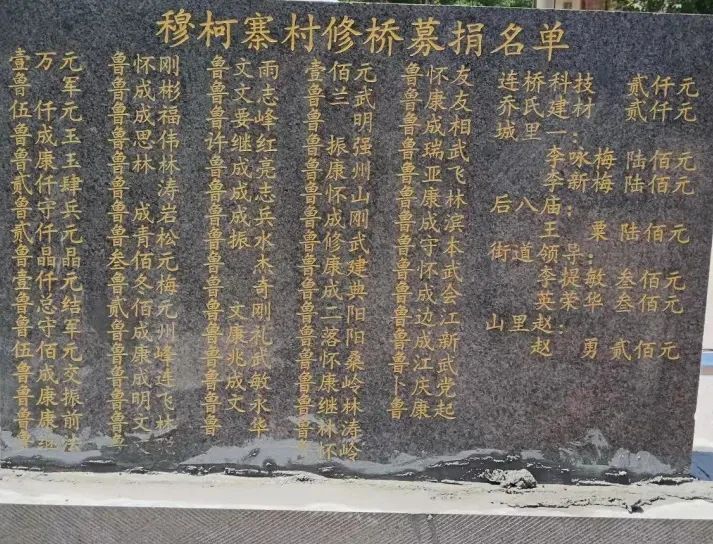 穆柯寨村修桥募捐名单
壹万元
鲁 军
伍仟元
鲁成王
鲁康王
贰仟肆
鲁守兵
贰仟元
鲁晶晶
壹仟元
鲁总结
鲁守军
伍佰元
鲁成交
鲁康振
鲁康前
鲁继法
鲁怀刚
鲁成彬
鲁成福
鲁思伟
鲁林林
鲁 涛
鲁成若
鲁青松
叁佰元
鲁冬梅
贰佰元
鲁成州
鲁康峰
鲁成连
鲁明飞
鲁文林
鲁文雨
鲁文志
鲁要峰
鲁继红
许成亮
鲁成志
鲁成兵
鲁振水
鲁 杰
鲁 奇
鲁 刚
鲁文礼
鲁康武
鲁兆敏
鲁成永
鲁文华
壹佰元
鲁兰武
鲁 明
鲁振强
鲁康州
鲁怀山
鲁成刚
鲁修武
鲁康建
鲁成典
鲁二阳
鲁落阳
鲁怀桑
鲁康岭
鲁继林
鲁林涛
鲁怀岭
鲁怀友
鲁康友
鲁成相
鲁瑞武
鲁亚飞
鲁康林
鲁成滨
鲁守本
鲁怀武
鲁成会
鲁边江
鲁成新
鲁江武
卜庆党
鲁康起
连桥科技 贰仟元
乔氏建材 贰仟元
城里一:
李咏梅 陆佰元
李新梅 陆佰元
后八庙:
王 粟 陆佰元
街道领导:
李提敏 叁佰元
英荣华 叁佰元
山里赵:
赵 勇 贰佰元